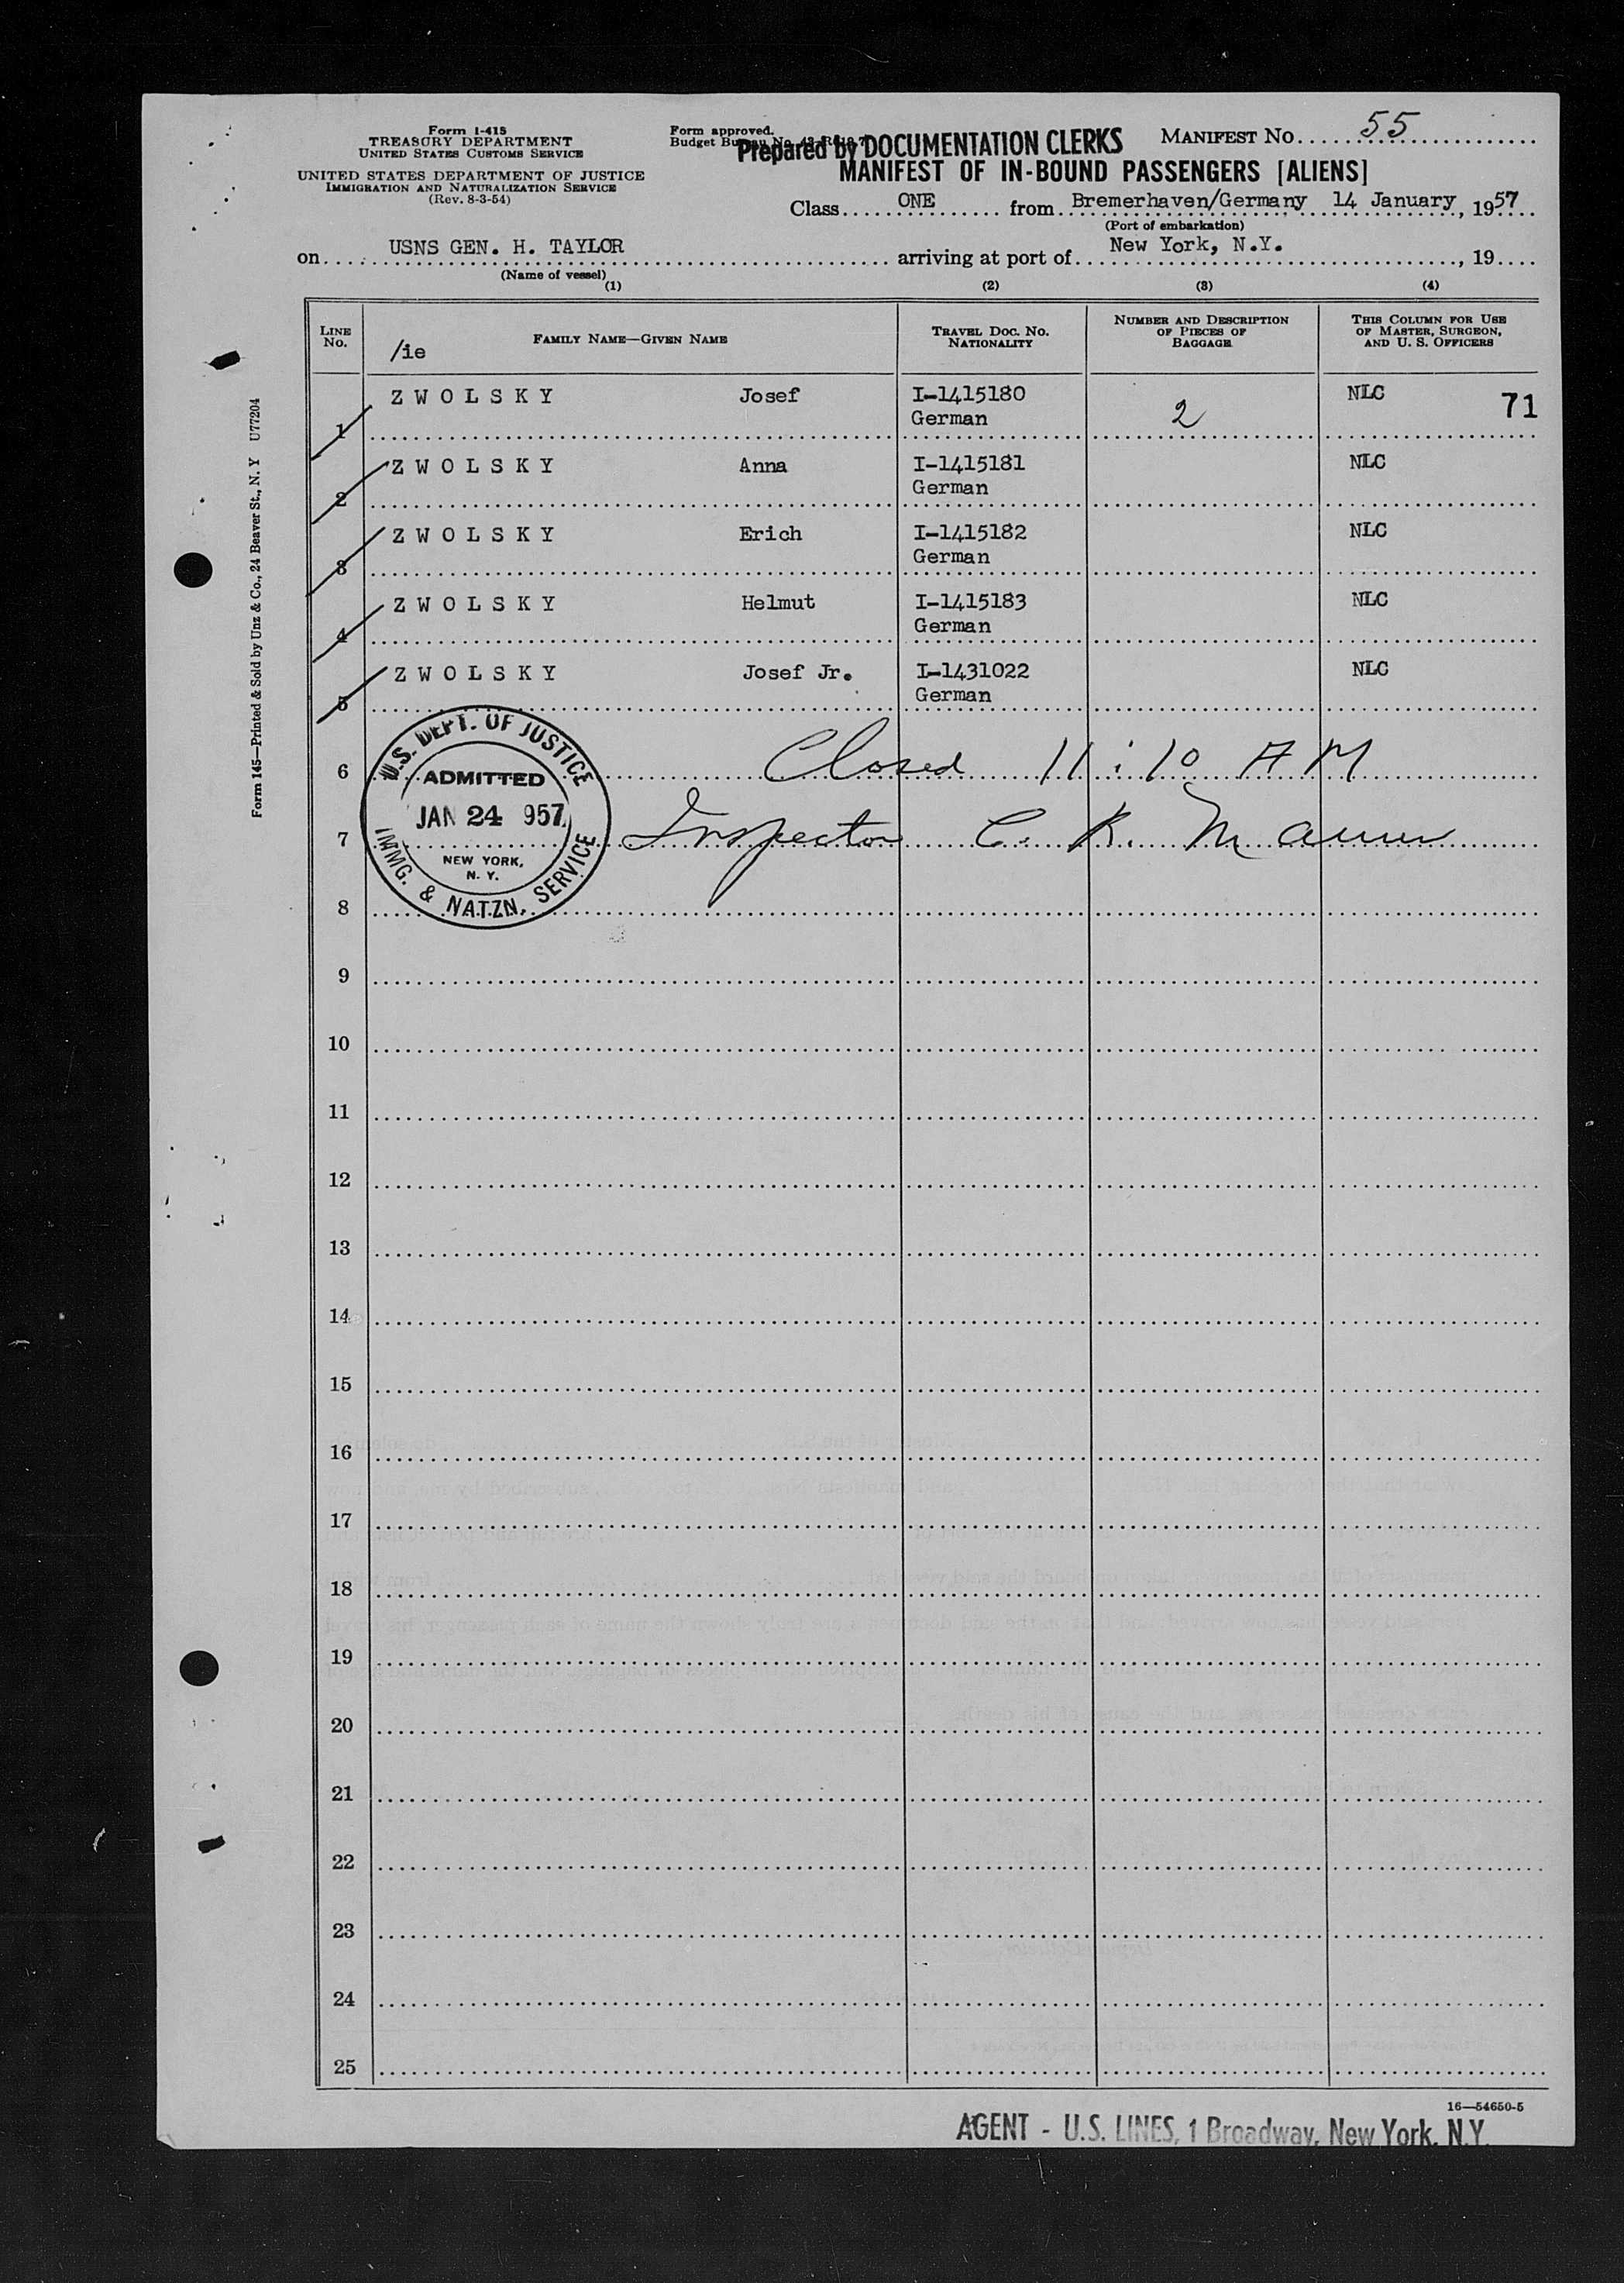 Form I-415
TREASURY DEPARTMENT
UNITED STATES CUSTOMS SERVICE
UNITED STATES DEPARTMENT OF JUSTICE
IMMIGRATION AND NATURALIZATION SERVICE
(Rev. 8-3-54)
Form approved.
Budget Bureau No.
Prepared by DOCUMENTATION CLERKS
MANIFEST NO. 55
MANIFEST OF IN-BOUND PASSENGERS [ALIENS]
Class ONE from Bremerhaven/Germany 14 January, 1957
(Port of embarkation)
on USNS GEN. H. TAYLOR arriving at port of New York, N.Y. , 19
(Name of vessel)
(1) (2) (3) (4)
LINE NO. /ie FAMILY NAME—GIVEN NAME TRAVEL DOC. NO. NATIONALITY NUMBER AND DESCRIPTION OF PIECES OF BAGGAGE THIS COLUMN FOR USE OF MASTER, SURGEON, AND U. S. OFFICERS
1 ZWOLSKY Josef I-1415180 German 2 NLC 71
2 ZWOLSKY Anna I-1415181 German NLC
3 ZWOLSKY Erich I-1415182 German NLC
4 ZWOLSKY Helmut I-1415183 German NLC
5 ZWOLSKY Josef Jr. I-1431022 German NLC
6 Closed 11:10 AM
7 Inspector C. K.
8
U.S. DEPT. OF JUSTICE
ADMITTED
JAN 24 957
NEW YORK,
N. Y.
IMMG. & NATZN. SERVICE
9
10
11
12
13
14
15
16
17
18
19
20
21
22
23
24
25
16—54650-5
AGENT - U.S. LINES, 1 Broadway, New York, N.Y.
Form 145—Printed & Sold by Unz & Co., 24 Beaver St., N. Y U77204